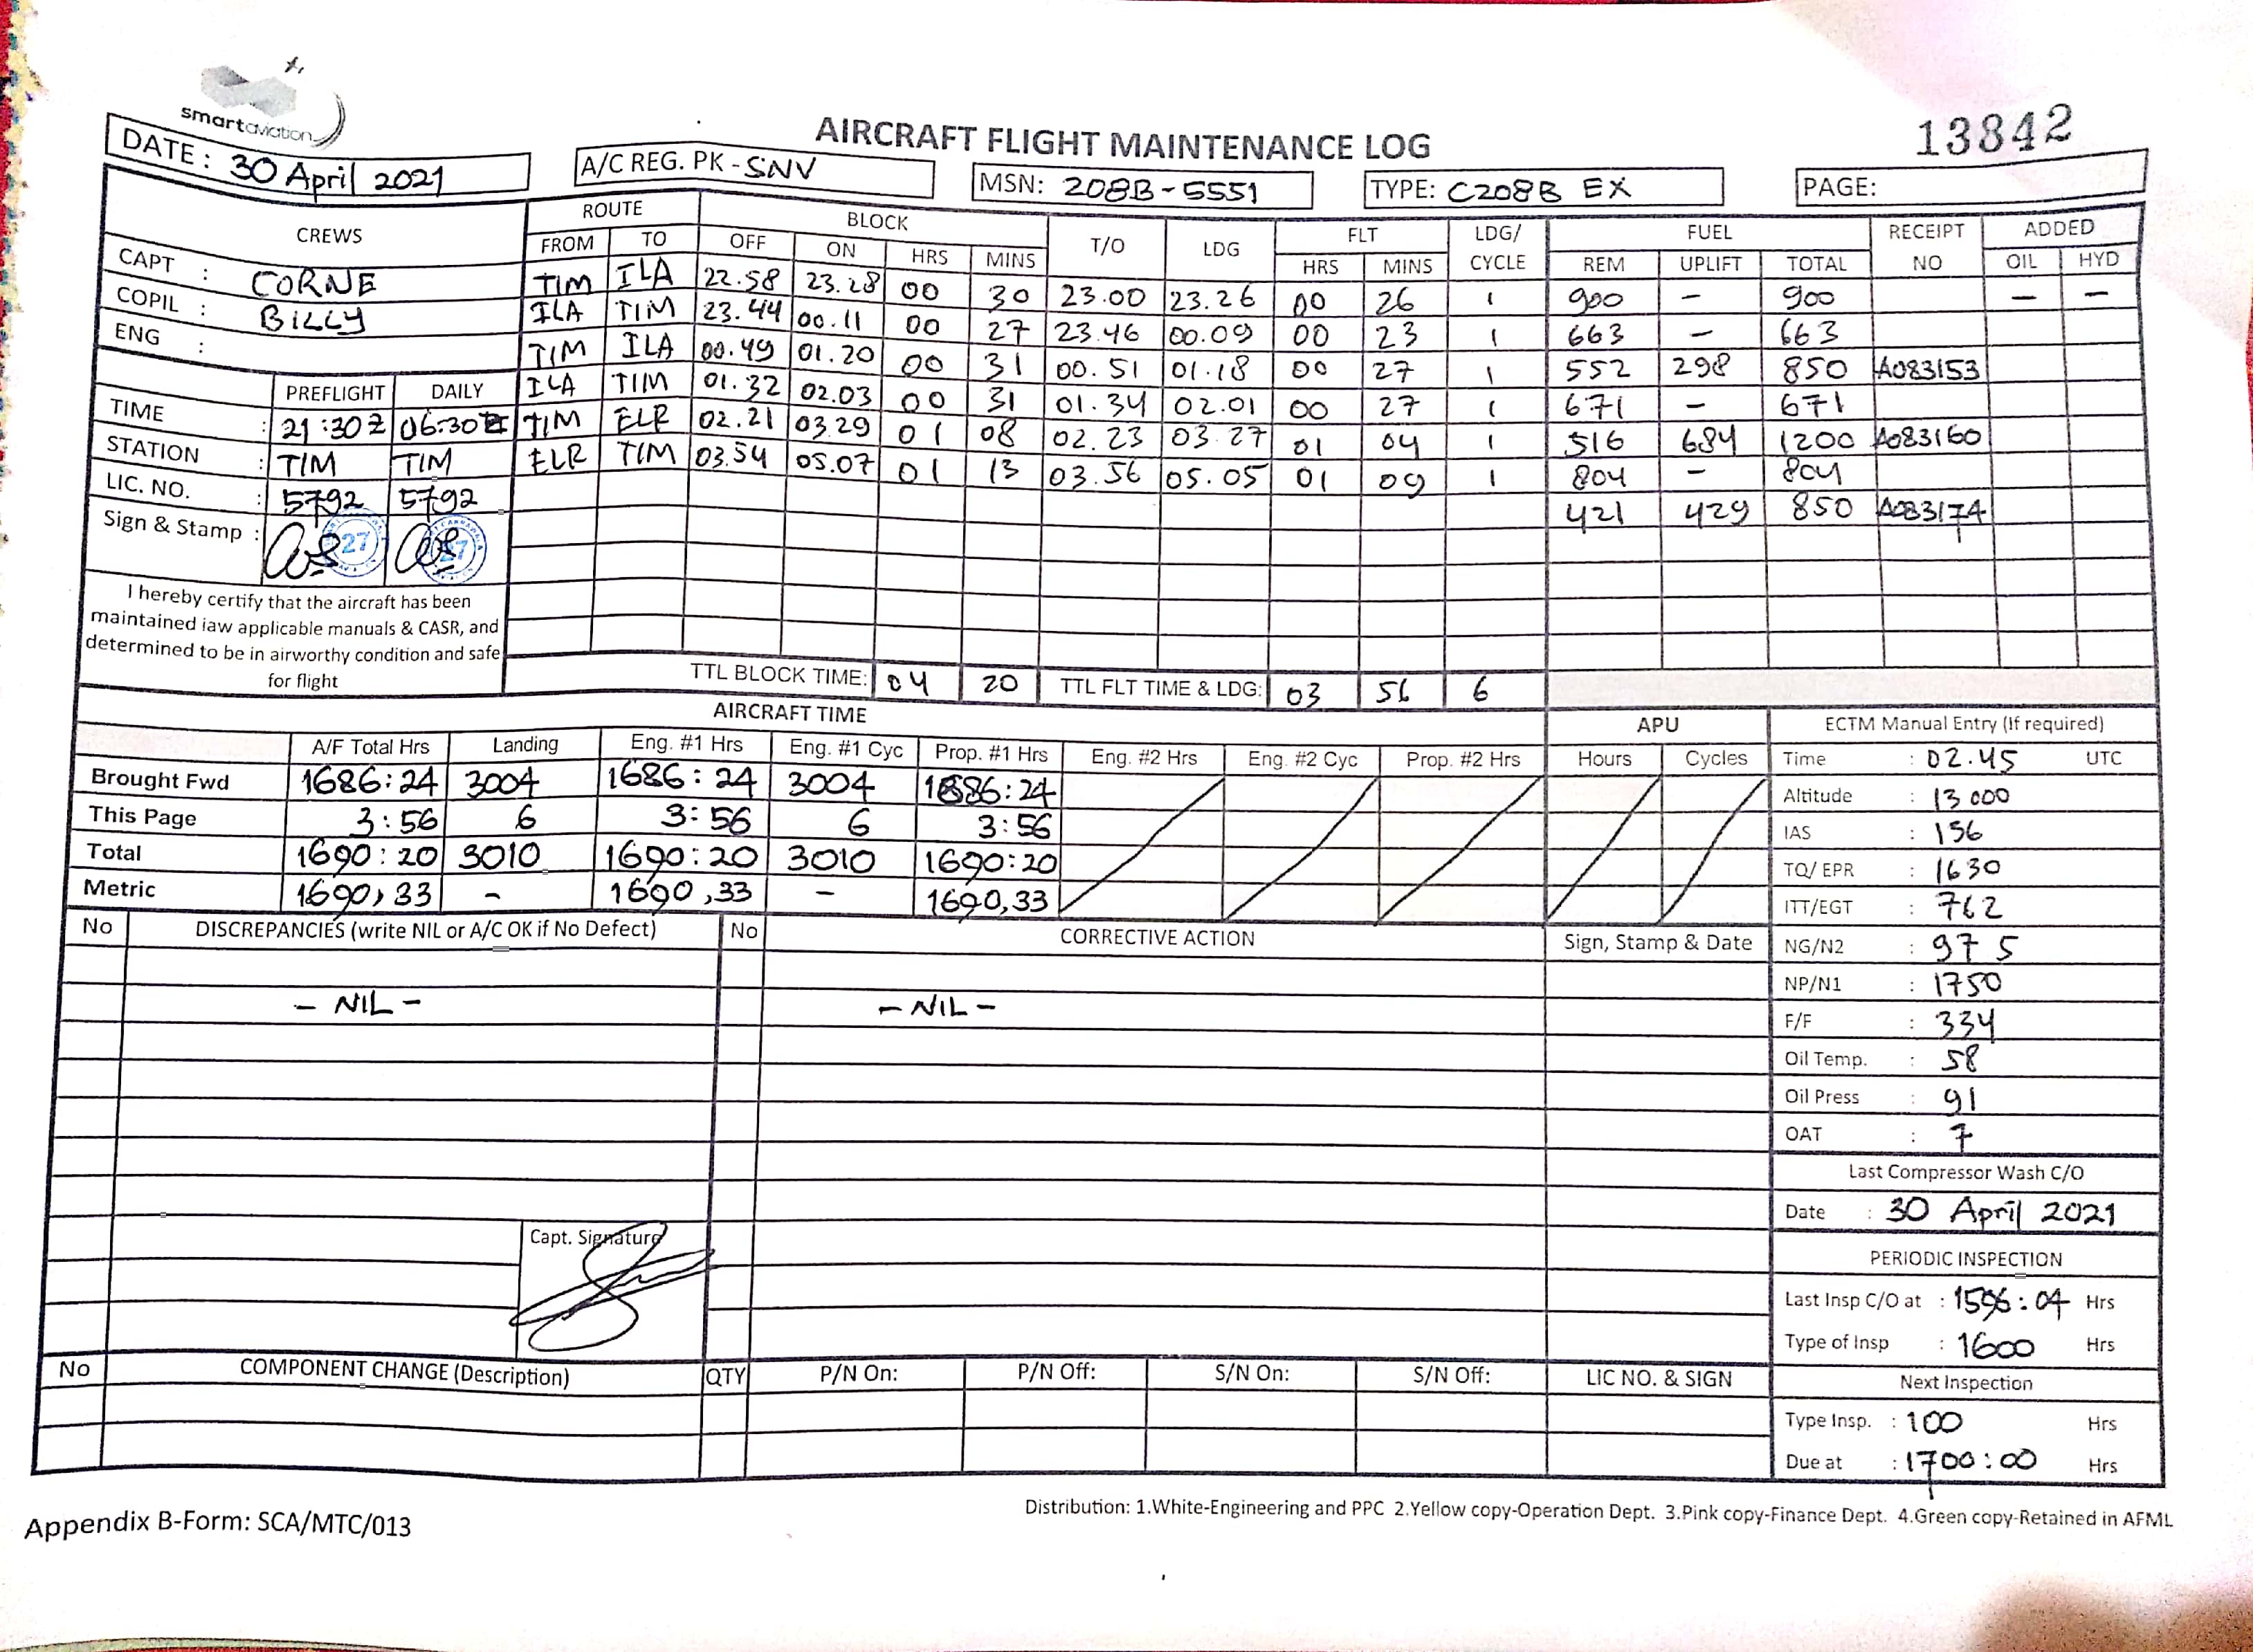 smartaviation
AIRCRAFT FLIGHT MAINTENANCE LOG
13842
DATE : 30 April 2021
A/C REG. PK - SNV
MSN: 208B-5551
TYPE: C208B EX
PAGE:
CREWS ROUTE BLOCK T/O LDG FLT LDG/ CYCLE FUEL RECEIPT NO ADDED
FROM TO OFF ON HRS MINS HRS MINS REM UPLIFT TOTAL OIL HYD
CAPT : CORNE
COPIL : BILLY
ENG :
TIM ILA 22.58 23.28 00 30 23.00 23.26 00 26 1 900 – 900 – –
ILA TIM 23.44 00.11 00 27 23.46 00.09 00 23 1 663 – 663
TIM ILA 00.49 01.20 00 31 00.51 01.18 00 27 1 552 298 850 A083153
ILA TIM 01.32 02.03 00 31 01.34 02.01 00 27 1 671 – 671
TIM ELR 02.21 03.29 01 08 02.23 03.27 01 04 1 516 684 1200 A083160
ELR TIM 03.54 05.07 01 13 03.56 05.05 01 09 1 804 – 804
421 429 850 A083174
PREFLIGHT DAILY
TIME : 21:30 Z 06:30 Z
STATION : TIM TIM
LIC. NO. : 5792 5792
Sign & Stamp : 27 27
I hereby certify that the aircraft has been
maintained iaw applicable manuals & CASR, and
determined to be in airworthy condition and safe
for flight
TTL BLOCK TIME: 04 20 TTL FLT TIME & LDG: 03 56 6
AIRCRAFT TIME
APU
A/F Total Hrs Landing Eng. #1 Hrs Eng. #1 Cyc Prop. #1 Hrs Eng. #2 Hrs Eng. #2 Cyc Prop. #2 Hrs Hours Cycles
Brought Fwd 1686:24 3004 1686:24 3004 1686:24
This Page 3:56 6 3:56 6 3:56
Total 1690:20 3010 1690:20 3010 1690:20
Metric 1690,33 – 1690,33 – 1690,33
ECTM Manual Entry (If required)
Time : 02.45 UTC
Altitude : 13 000
IAS : 156
TQ/ EPR : 1630
ITT/EGT : 762
NG/N2 : 97 5
NP/N1 : 1750
F/F : 334
Oil Temp. : 58
Oil Press : 91
OAT : 7
Last Compressor Wash C/O
Date : 30 April 2021
PERIODIC INSPECTION
Last Insp C/O at : 1596:04 Hrs
Type of Insp : 1600 Hrs
Next Inspection
Type Insp. : 100 Hrs
Due at : 1700:00 Hrs
No DISCREPANCIES (write NIL or A/C OK if No Defect) No CORRECTIVE ACTION Sign, Stamp & Date
– NIL – – NIL –
Capt. Signature
No COMPONENT CHANGE (Description) QTY P/N On: P/N Off: S/N On: S/N Off: LIC NO. & SIGN
Distribution: 1.White-Engineering and PPC 2.Yellow copy-Operation Dept. 3.Pink copy-Finance Dept. 4.Green copy-Retained in AFML
Appendix B-Form: SCA/MTC/013